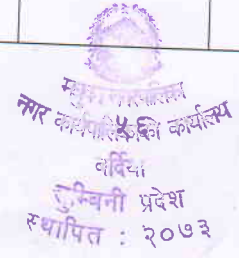 मधुवन नगरपालिका
नगर कार्यपालिकाको कार्यालय
५६
बर्दिया
लुम्बिनी प्रदेश
स्थापित : २०७३